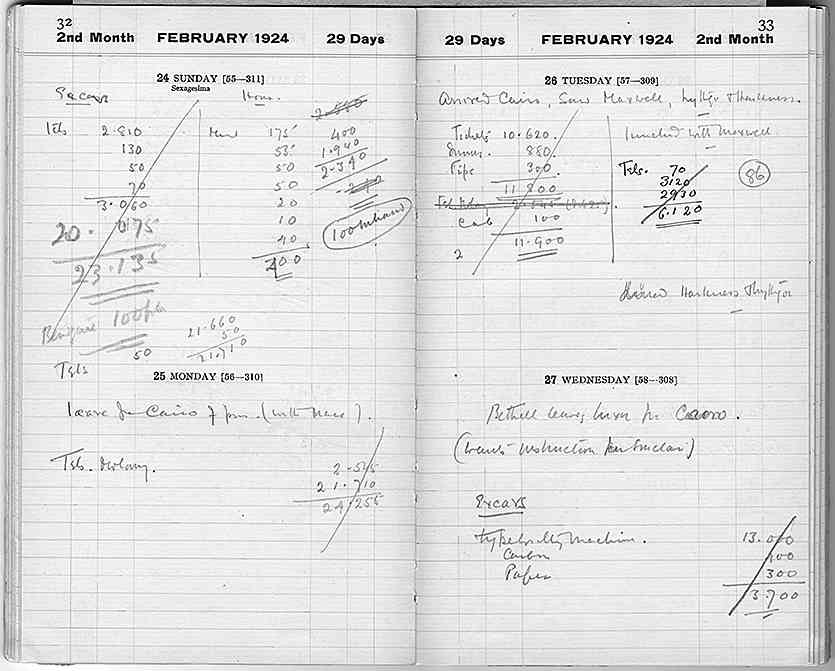 32
2nd Month FEBRUARY 1924 29 Days
24 SUNDAY [55—311]
Sexagesima
Excavs
House.
Tels 2.810
130
50
70
3.060
20. 075
23.135
100
50
175
55
50
50
20
10
40
400
400
1.940
2.340
100 in hand
21.660
50
21.710
Tels
25 MONDAY [56—310]
leave for Cairo 7 pm. (with Mace).
Tels.
2.545
21.710
24.255
33
29 Days FEBRUARY 1924 2nd Month
26 TUESDAY [57—309]
Arrived Cairo, Saw Maxwell, Lythgoe & Harkness.
Tickets 10.620.
880.
Tips 300.
11 800
Cab 100
11.900
2
lunched with Maxwell
Tels. 70
3120
2930
6.120
86
Dined Harkness & Lythgoe
27 WEDNESDAY [58—308]
Bethell leaves Luxor for Cairo.
Excavs
machine. 13.000
Carbon 400
Paper 300
13.700